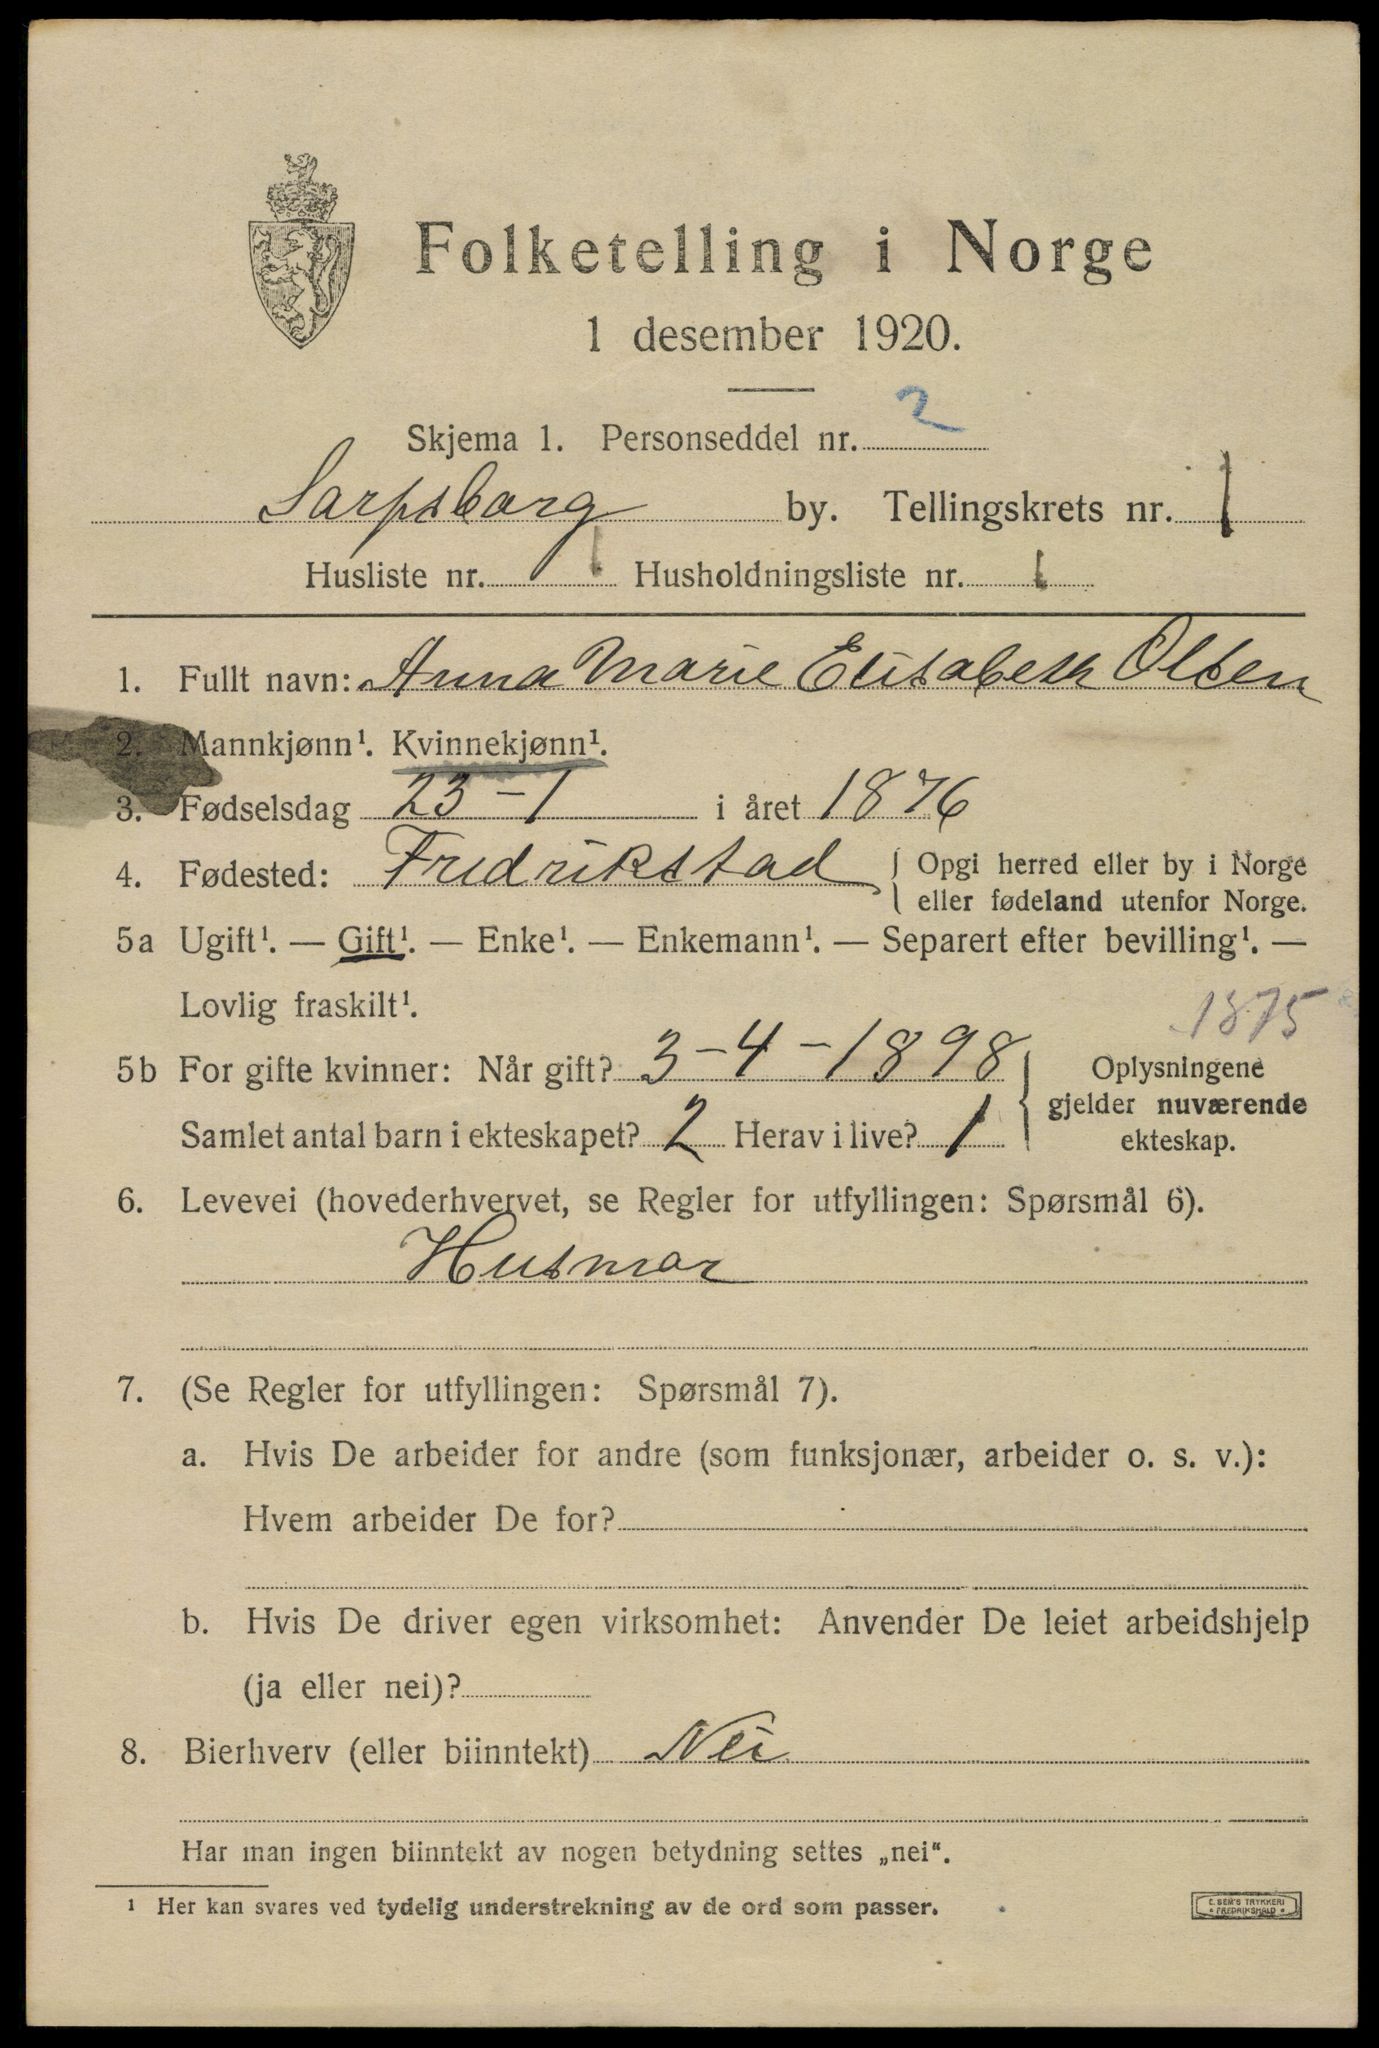 Folketelling i Norge
1 desember 1920.
Skjema 1. Personseddel nr. 2
Sarpsborg by. Tellingskrets nr. 1
Husliste nr. 1 Husholdningsliste nr. 1
1. Fullt navn: Anna Marie Elisabeth Olsen
2. Mannkjønn¹. Kvinnekjønn¹.
3. Fødselsdag 23-1 i året 1876
4. Fødested: Fredrikstad { Opgi herred eller by i Norge
eller fødeland utenfor Norge.
5a Ugift¹. — Gift¹. — Enke¹. — Enkemann¹. — Separert efter bevilling¹. —
Lovlig fraskilt¹.
1875
5b For gifte kvinner: Når gift? 3-4-1898 } Oplysningene
gjelder nuværende
Samlet antal barn i ekteskapet? 2 Herav i live? 1 ekteskap.
6. Levevei (hovederhvervet, se Regler for utfyllingen: Spørsmål 6).
Husmor
7. (Se Regler for utfyllingen: Spørsmål 7).
a. Hvis De arbeider for andre (som funksjonær, arbeider o. s. v.):
Hvem arbeider De for?
b. Hvis De driver egen virksomhet: Anvender De leiet arbeidshjelp
(ja eller nei)?
8. Bierhverv (eller biinntekt) Nei
Har man ingen biinntekt av nogen betydning settes „nei“.
¹ Her kan svares ved tydelig understrekning av de ord som passer.
E. SEM'S TRYKKERI
FREDRIKSHALD